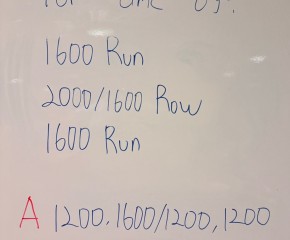 1600 Run
2000/1600 Row
1600 Run
A 1200, 1600/1200, 1200